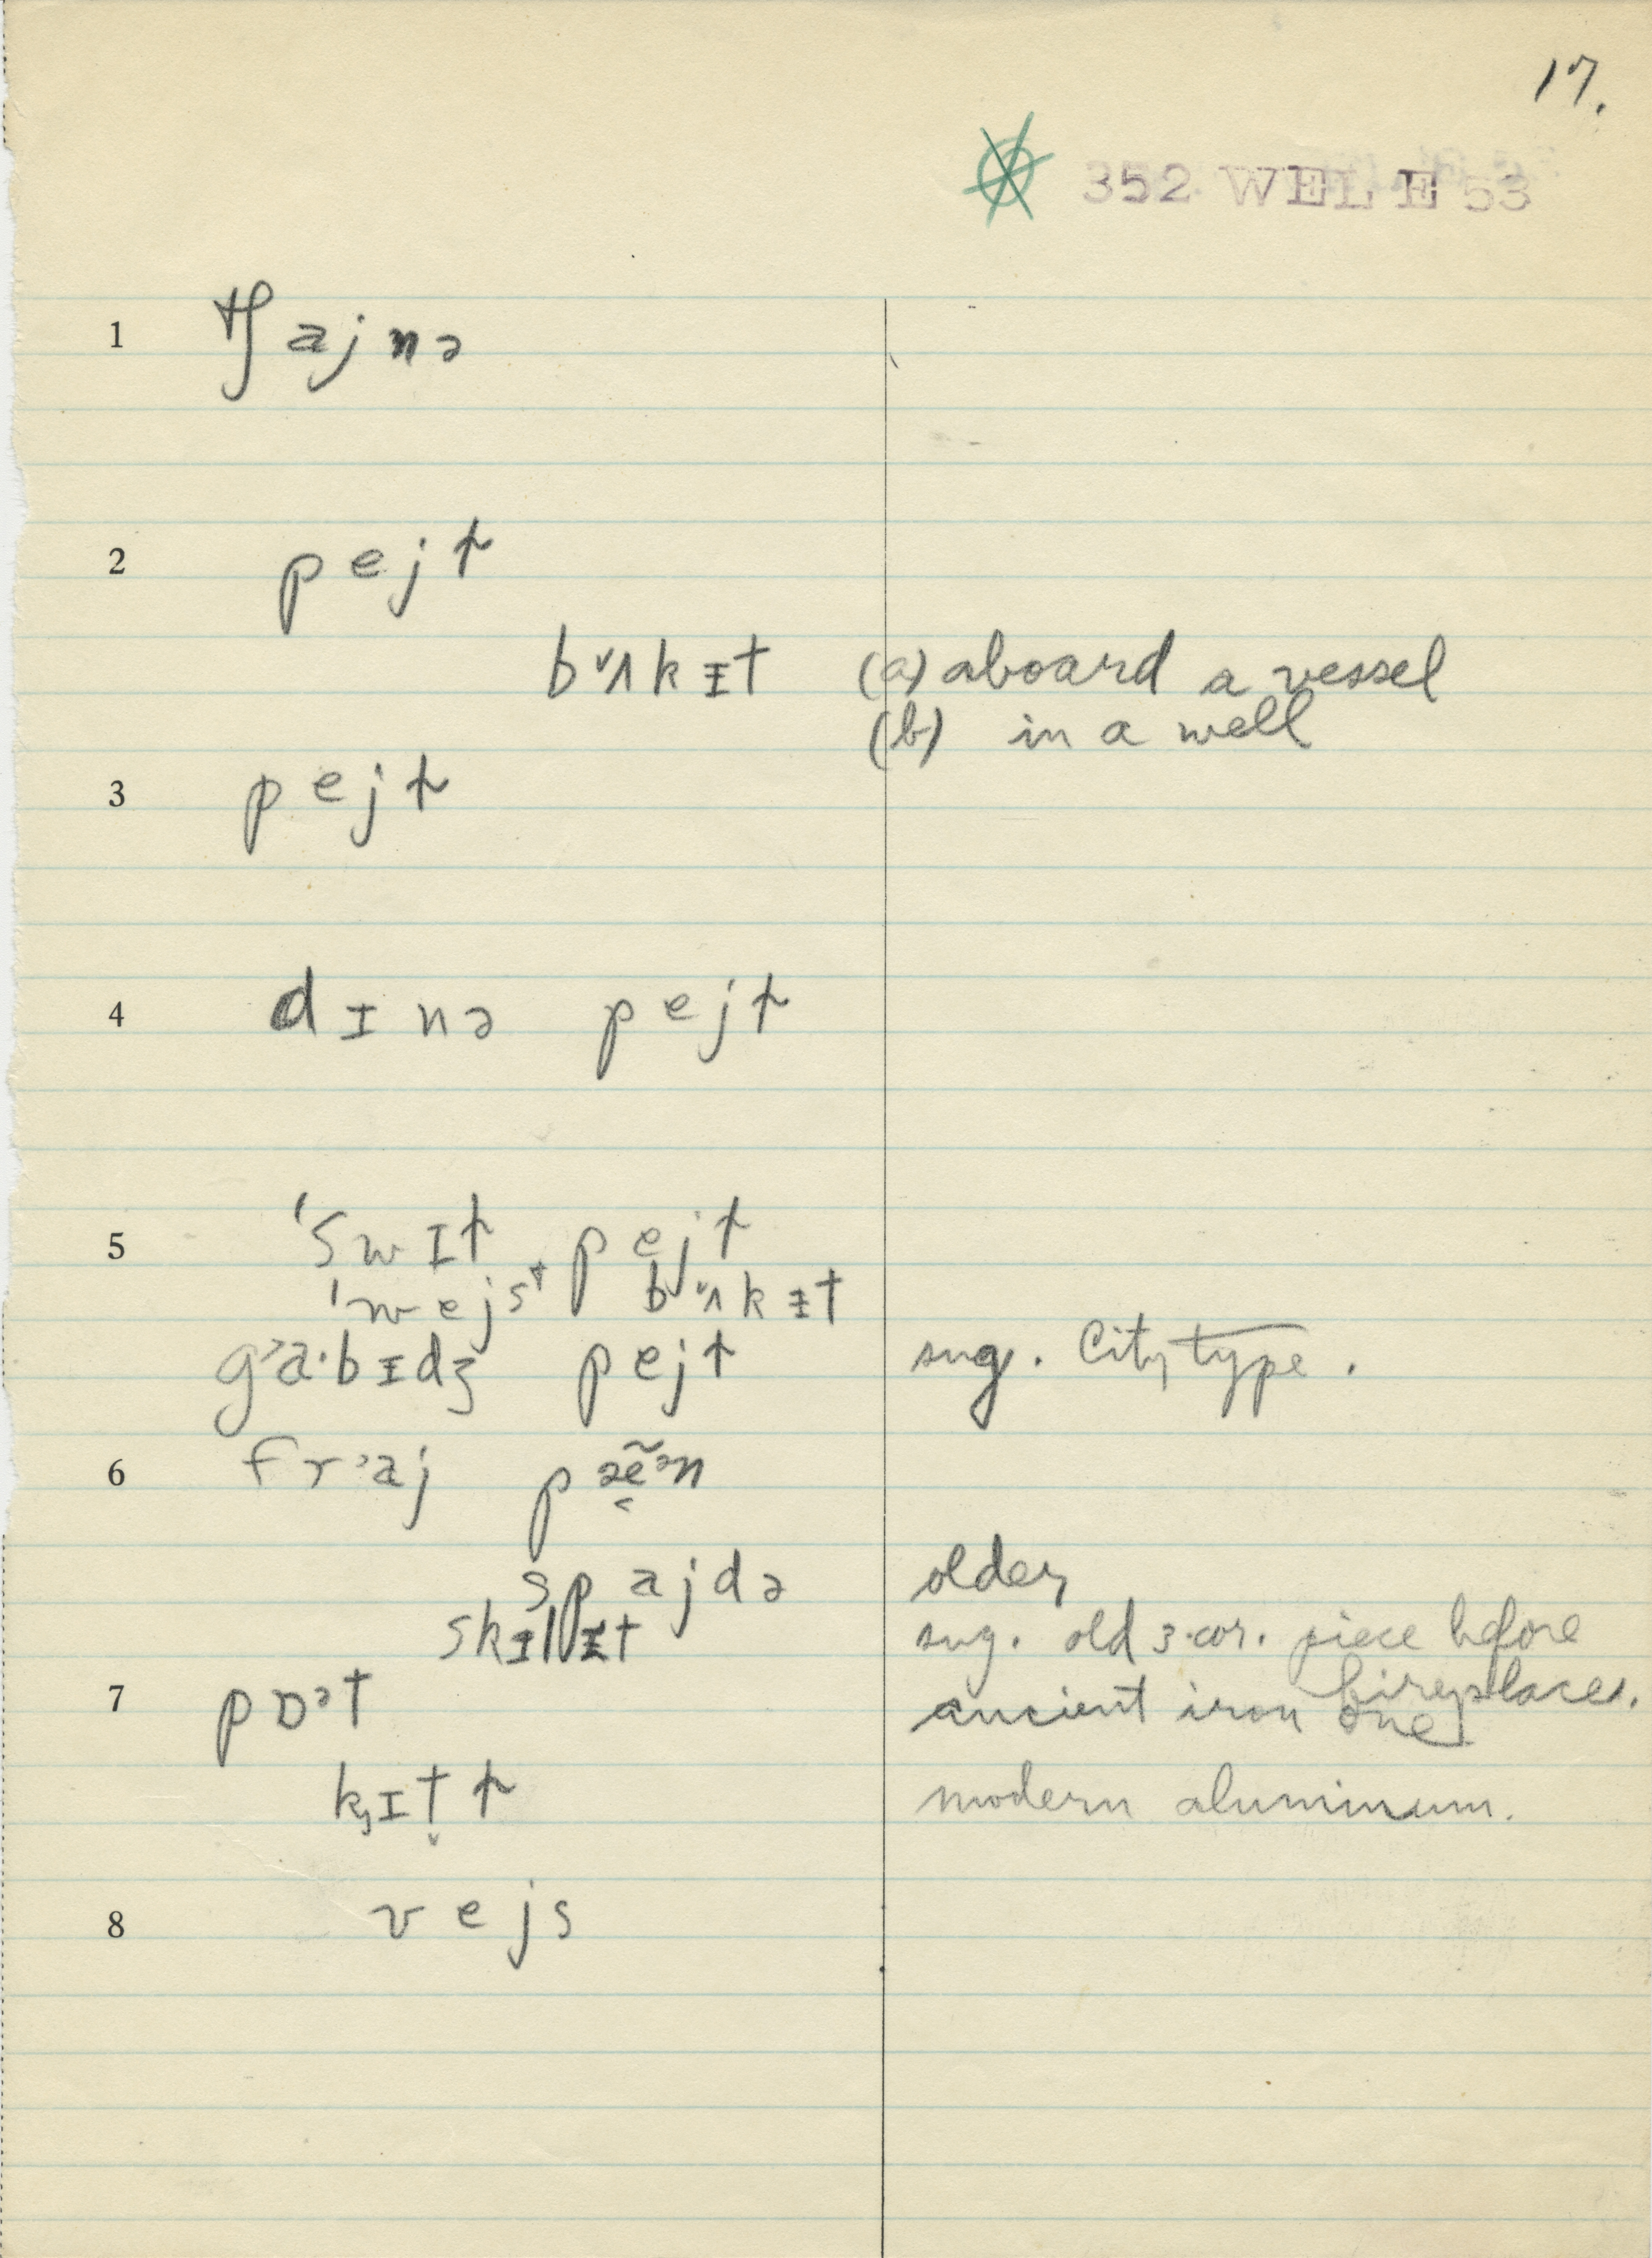 17.
352 WEL E 53
1 tʃajnə
2 pejɫ
bʌkɪt (a) aboard a vessel
(b) in a well
3 pejɫ
4 dɪnə pejɫ
5 'swɪɫ pejɫ
'wejst bʌkɪt
gʾa·bɪdʒ pejɫ sug. City type.
6 frʾaj pæ̃ᵊn
spajdə older
skɪlɪt sug. old 3-cor. piece before fireplace.
7 pɒᵊt ancient iron one
kɪt̬ɫ modern aluminum.
8 vejs